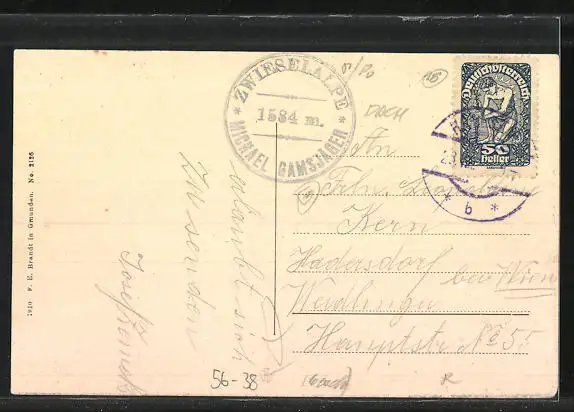 * ZWIESELALPE *
1584 m.
MICHAEL GAMSJÄGER
Deutschösterreich
50
Heller
* b *
An
Frln.
Kern
Hadersdorf
bei Wien
Weidlingau
Hauptstr No 55
erlaubt sich
Zu senden
Josef
1910 F. E. Brandt in Gmunden. No. 2126
56-38